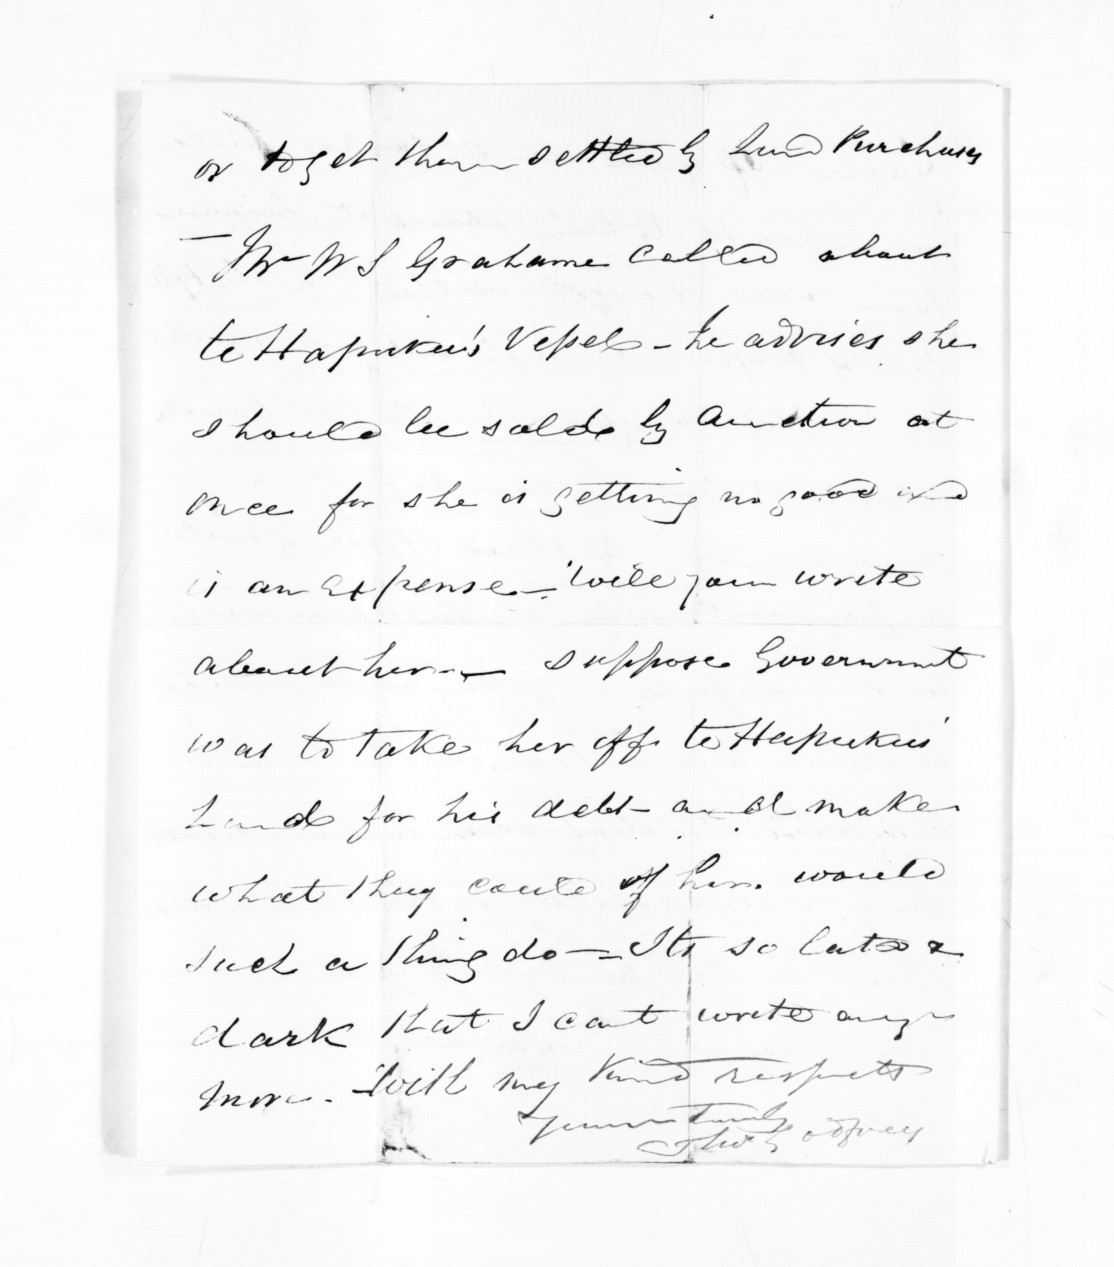 or to get them settled by Land Purchases
— Mr W S Grahame called about
te Hapuku's Vessel - he advises she
should be sold by Auction at
once for she is getting no good and
is an expense — Will you write
about her — suppose Government
was to take her off te Hapuku's
hands for his debt - and make
what they could of her. would
such a thing do — Its so late &
dark that I cant write any
more. - With my kind respects
Yours Truly
Godfrey